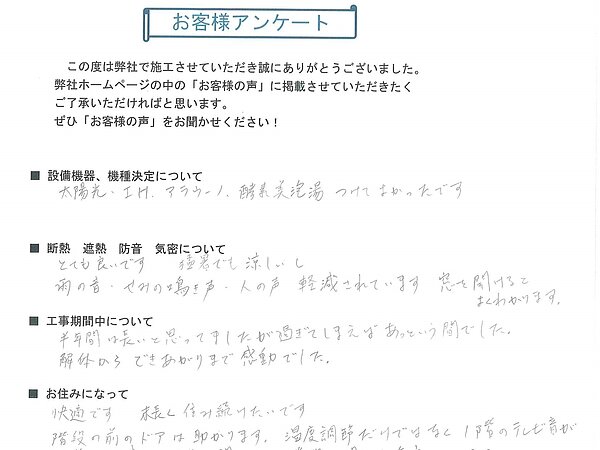 お客様アンケート
この度は弊社で施工させていただき誠にありがとうございました。
弊社ホームページの中の「お客様の声」に掲載させていただきたく
ご了承いただければと思います。
ぜひ「お客様の声」をお聞かせください！
■ 設備機器、機種決定について
太陽光・IH、アラウーノ、酵素美泡湯 つけてよかったです
■ 断熱 遮熱 防音 気密について
とても良いです 猛暑でも涼しいし
雨の音・せみの鳴き声・人の声 軽減されています 窓を開けると
よくわかります。
■ 工事期間中について
半年間は長いと思ってましたが過ぎてしまえばあっという間でした。
解体から できあがりまで 感動でした。
■ お住みになって
快適です 末長く住み続けたいです
階段の前のドアは助かります。温度調節だけではなく 1階のテレビ音が